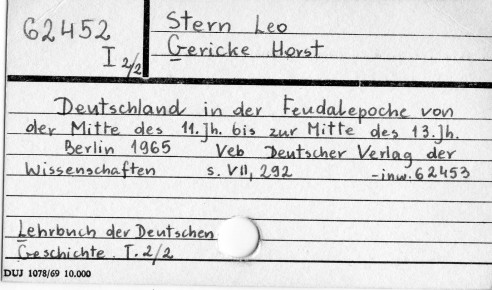 62452
I 2/2
Stern Leo
Gericke Horst
Deutschland in der Feudalepoche von
der Mitte des 11.Jh. bis zur Mitte des 13.Jh.
Berlin 1965 Veb Deutscher Verlag der
Wissenschaften s. VII, 292 -inw. 62453
Lehrbuch der Deutschen
Geschichte. I. 2/2
DUJ 1078/69 10.000